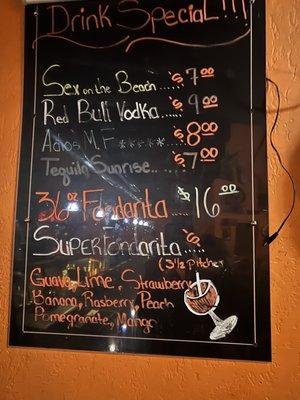 Drink Special!!!
Sex on the Beach..... $7.00
Red Bull Vodka..... $9.00
Adios M.F***** $8.00
Tequila Sunrise... $7.00
36oz Fondarita.... $16.00
Super Fondarita.... $
(3 1/2 pitcher)
Guava, Lime, Strawberry
Banana, Rasberry, Peach
Pomegranate, Mango